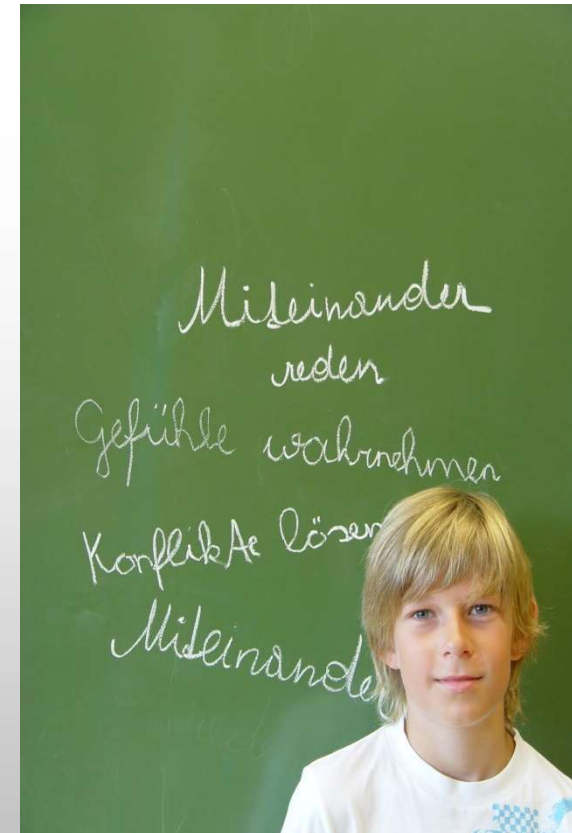 Miteinander
reden
Gefühle wahrnehmen
Konflikte lösen
Miteinande